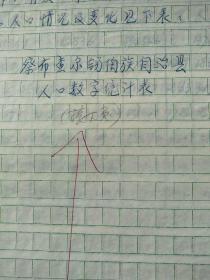 人口情况及变化见下表。
察布查尔锡伯族自治县
人口数字统计表